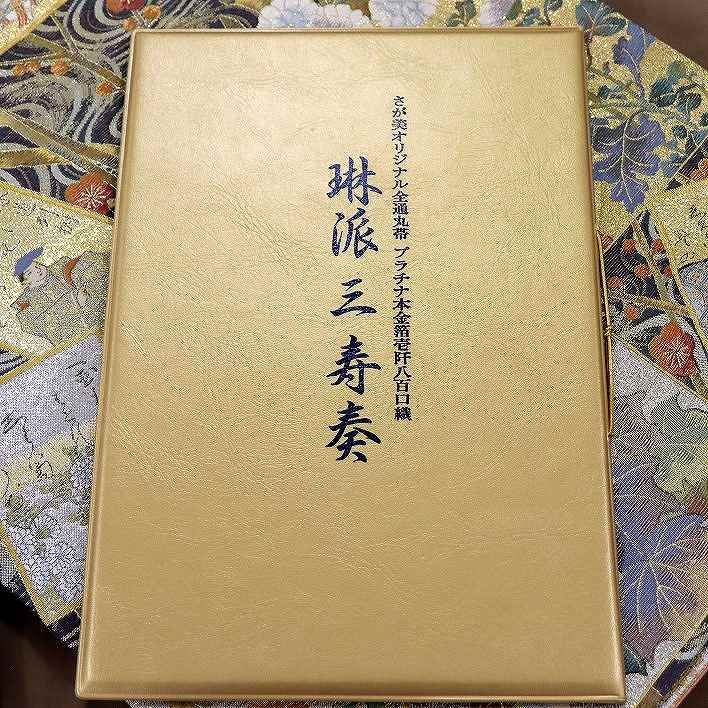 さが美オリジナル全通丸帯 プラチナ本金箔壱阡八百口織
琳派 三寿奏